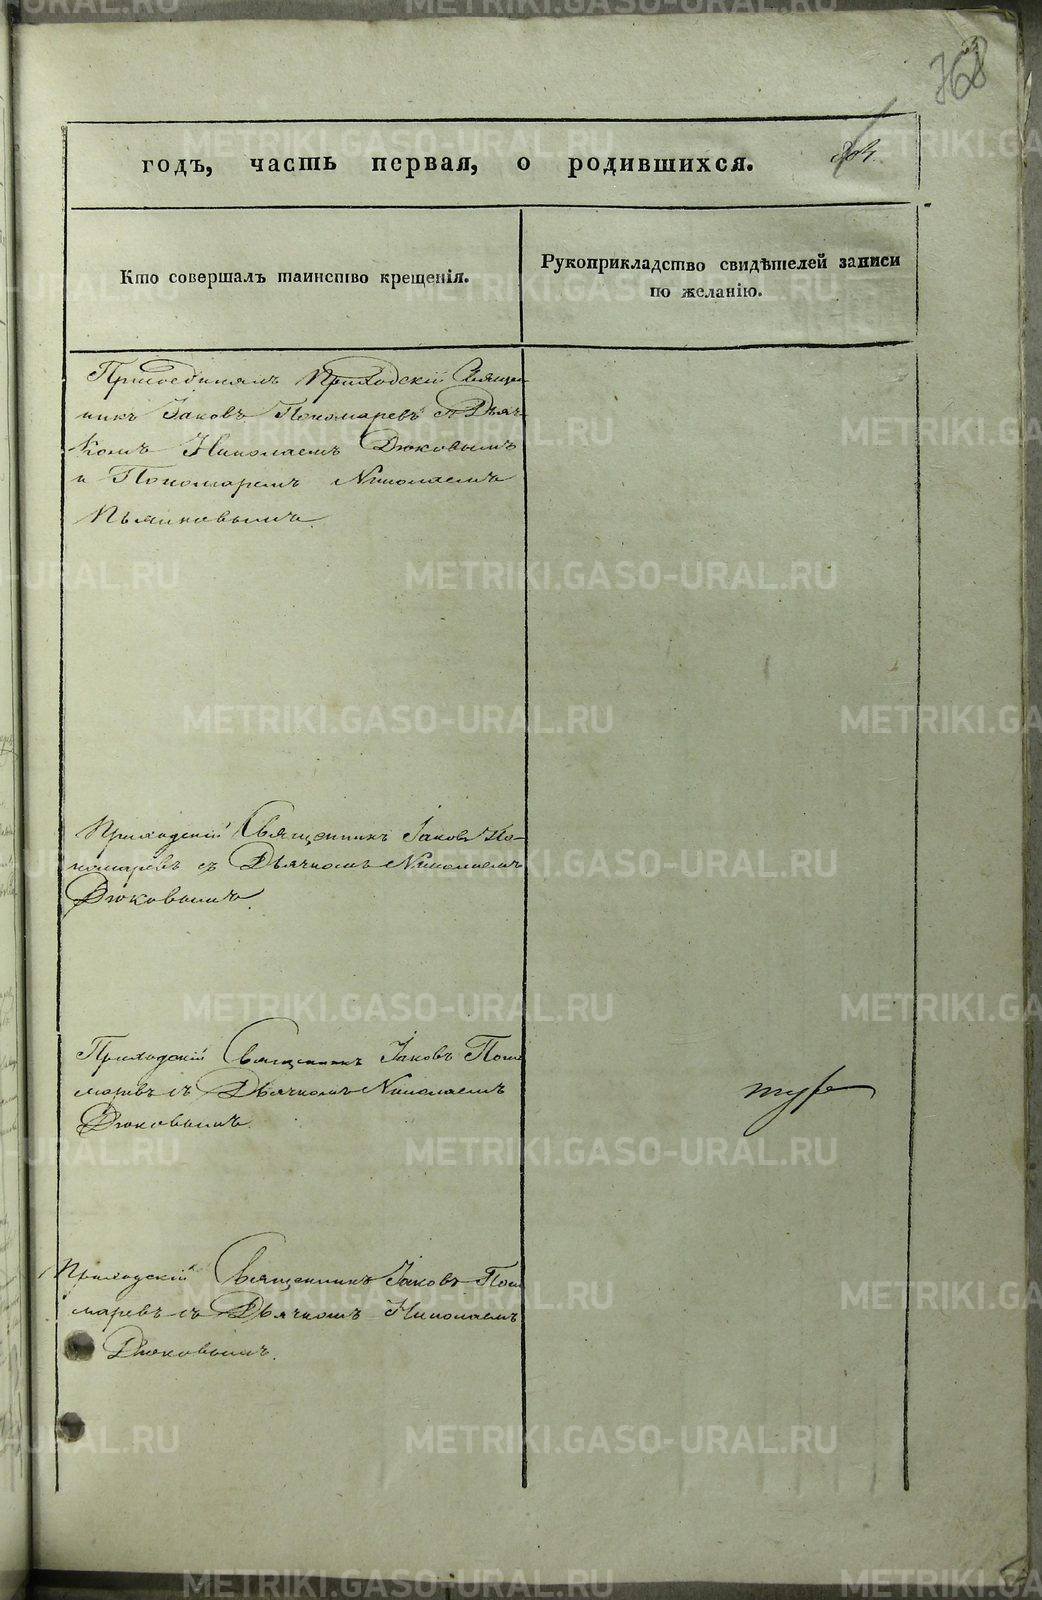 368
годъ, часть первая, о родившихся.
Кто совершалъ таинство крещенія.
Рукоприкладство свидѣтелей записи
по желанію.
Присоединялъ Приходскій Священ-
никъ Іаковъ Пономаревъ съ Дьяч-
комъ Николаемъ Дюковымъ
и Пономаремъ Николаемъ
Пьянковымъ.
Приходскій Священникъ Іаковъ По-
номаревъ съ Дьячкомъ Николаемъ
Дюковымъ.
Приходскій Священникъ Іаковъ Поно
маревъ съ Дьячкомъ Николаемъ
Дюковымъ.
Приходскій Священникъ Іаковъ Поно
маревъ съ Дьячкомъ Николаемъ
Дюковымъ.
METRIKI.GASO-URAL.RU